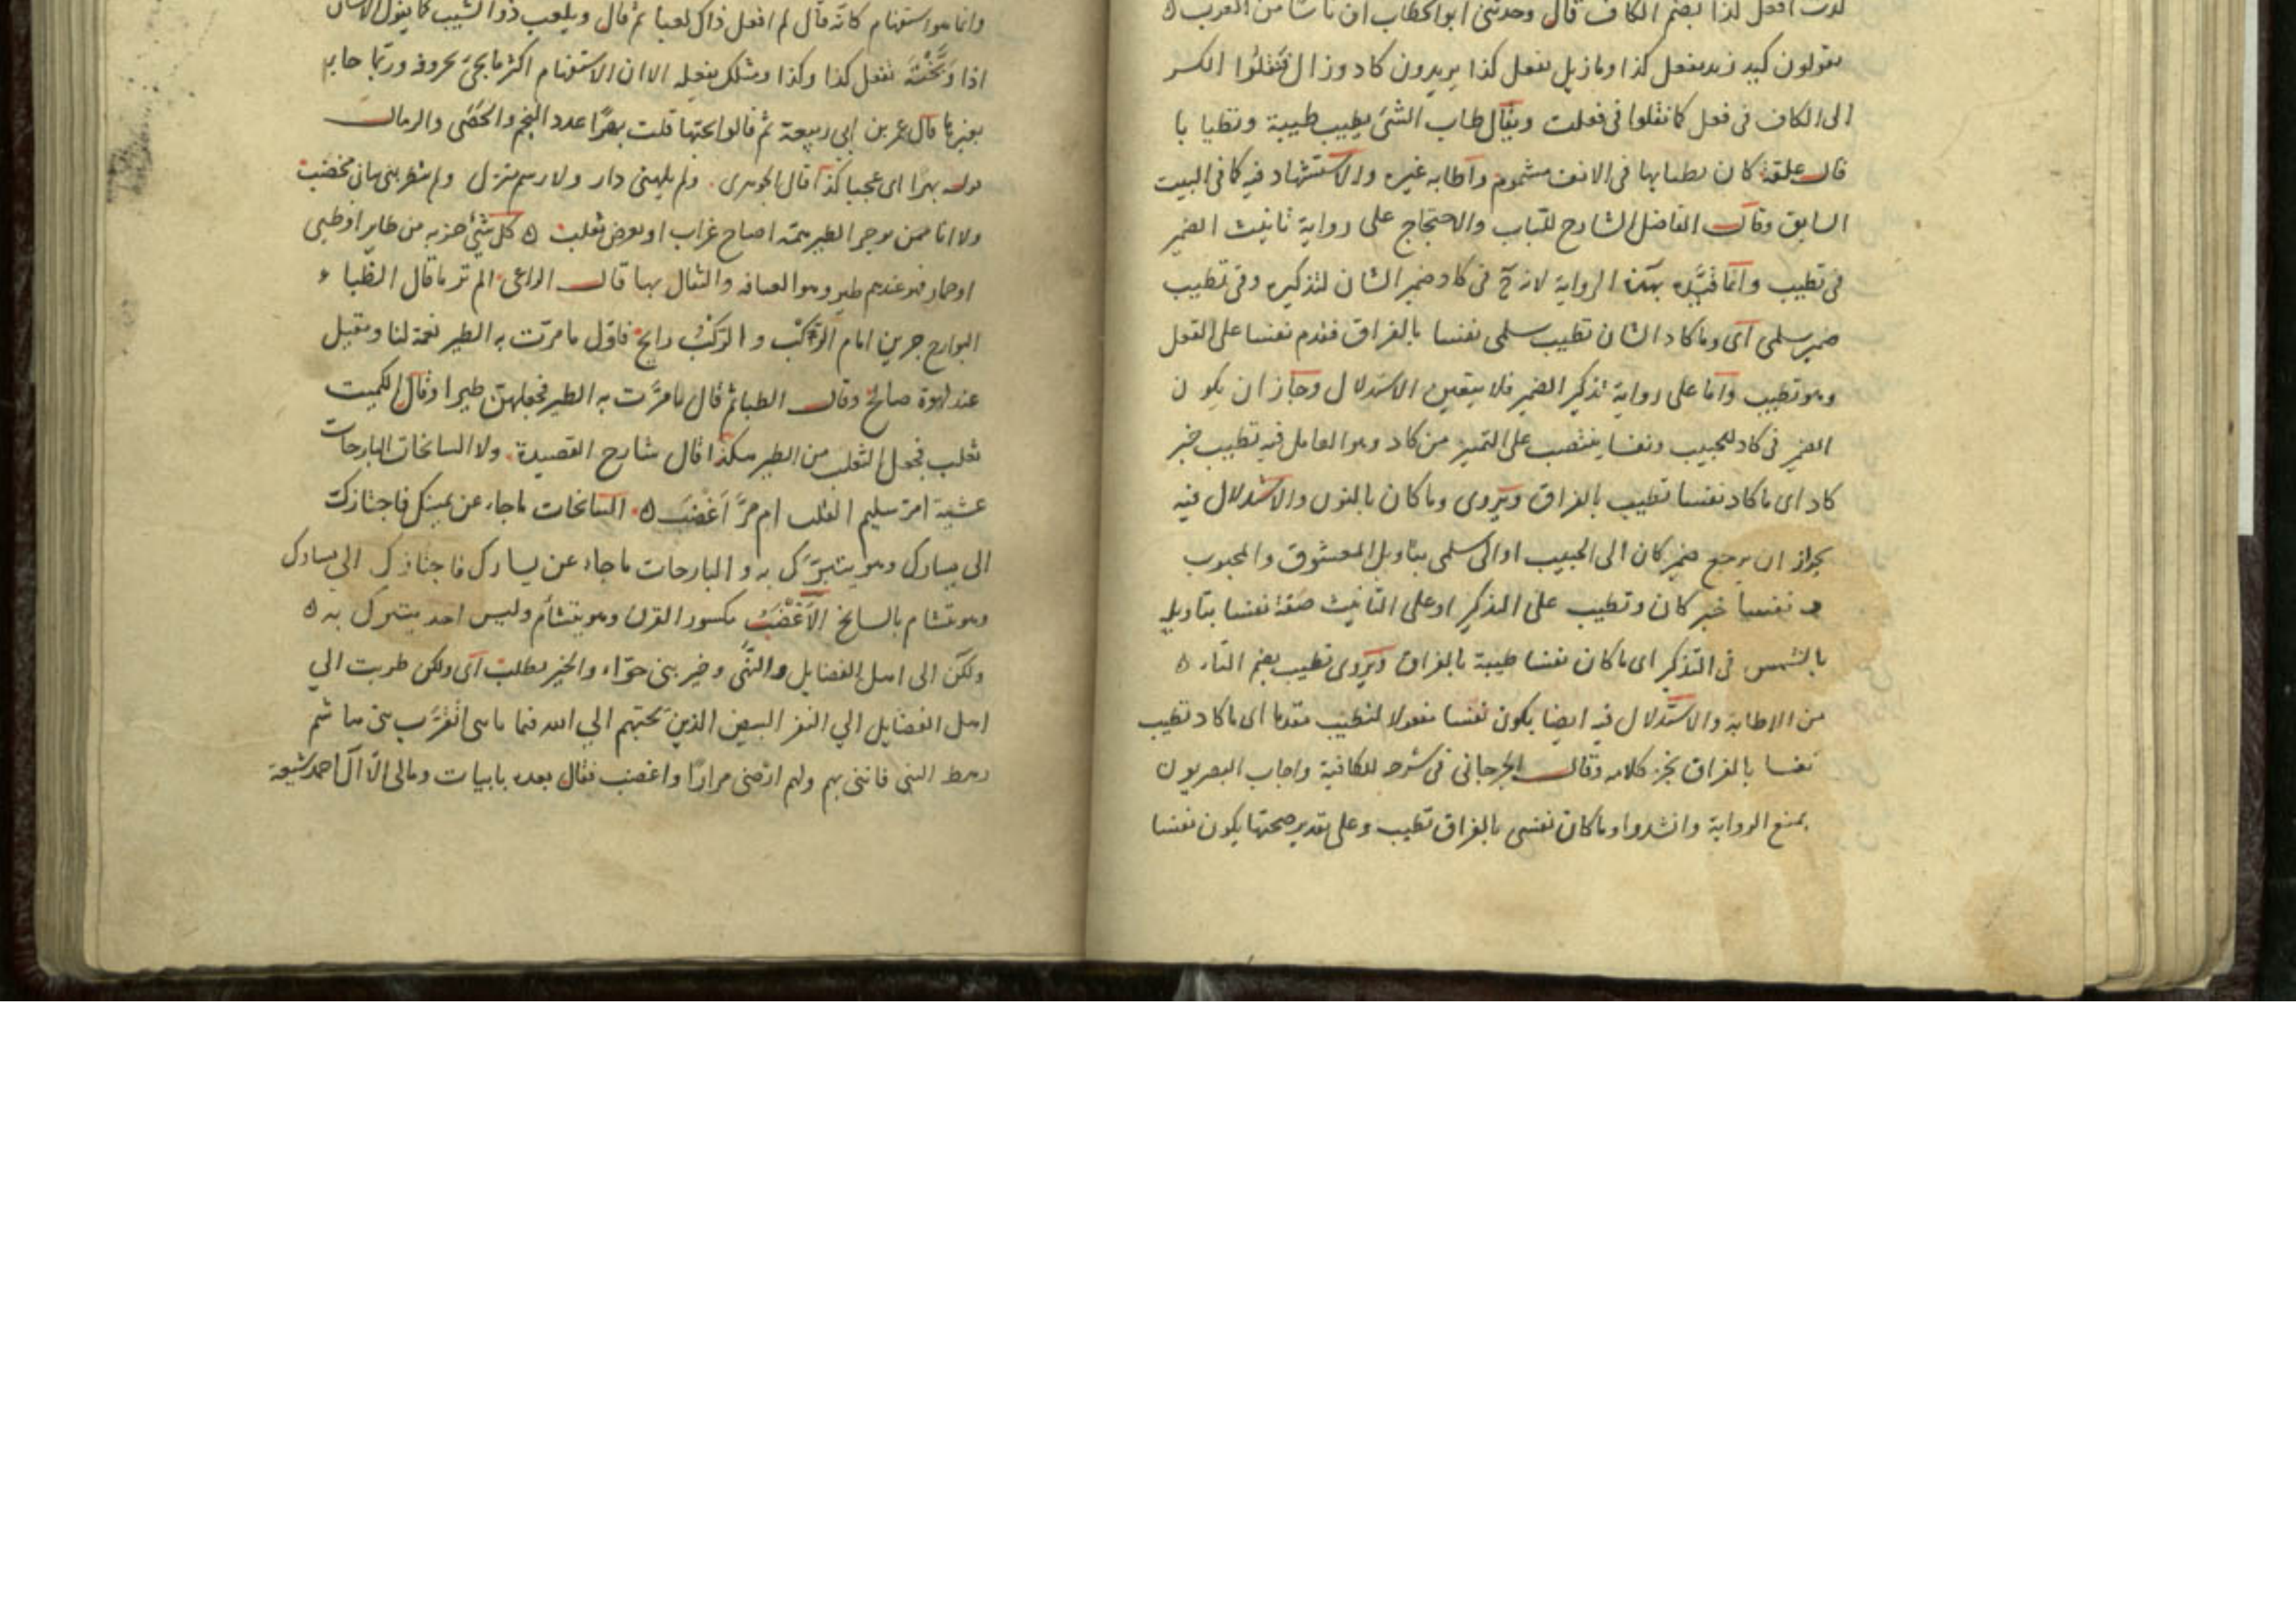 كدت افعل كذا بضم الكاف قال وحدثنى ابو الخطاب ان ناسا من العرب
يقولون كيد زيد يفعل كذا وما زيل يفعل كذا يريدون كاد وزال فنقلوا الكسر
الى الكاف فى فعل كما نقلوا فى فعلت ويقال طاب الشئ يطيب طيبة وتطيا با
قال علقمة كان تطيابها فى الانف مشموم واطابه غيره والاستشهاد فيه كما فى البيت
السابق وقال الفاضل الشارح للباب والاحتجاج على رواية تانيث الضمير
فى تطيب وانما قيد بهذه الرواية لانه ح فى كاد ضمير الشان لتذكيره وفى تطيب
ضمير سلمى اى وما كاد الشان تطيب سلمى نفسا بالفراق فقدم نفسا على الفعل
وهو تطيب واما على رواية تذكير الضمير فلا يتعين الاستدلال وجاز ان يكون
الضمير فى كاد للحبيب ونفسا ينتصب على التميز من كاد وهو العامل فيه تطيب خبر
كاد اى ما كاد نفسا تطيب بالفراق ويروى وما كان بالنون والاستدلال فيه
بجواز ان يرجع ضمير كان الى الحبيب او الى سلمى بتاويل المعشوق والمحبوب
و نفسا خبر كان وتطيب على التذكير او على التانيث صفة نفسا بتاويله
بالشخص فى التذكير اى ما كان نفسا طيبة بالفراق ويروى تطيب بضم التاء
من الاطابة والاستدلال فيه ايضا يكون نفسا مفعولا لتطيب مقدما اى ما كاد تطيب
نفسا بالفراق نجز كلامه وقال الجرجانى فى شرحه للكافية واجاب البصريون
بمنع الرواية وانشدوا وما كان نفسى بالفراق تطيب وعلى تقدير صحتها يكون نفسا
وانما هو استفهام كانه قال لم افعل ذاك لعبا ثم قال ويلعب ذو الشيب كما يقول الانسان
اذا وَبَّخْتَهُ تفعل كذا وكذا ومثلك يفعله الا ان الاستفهام اكثر ما يجئ بحروفه وربما جاء
بغيرها قال عمر بن ابى ربيعة ثم قالوا تحبها قلت بهرًا عدد النجم والحَصَى والرمال
قوله بهرا اى عجبا كذا قال الجوهرى ولم يلهينى دار ولا رسم منزل ولم يتطربنى بنان مخضب
ولا انا ممن يزجر الطير همه اصاح غراب او تعرض ثعلب كل شئ حزبه من طاير او ظبى
او حمار فهو عندهم طير وهو العيافه والفال بها قال الراعى الم تر ما قال الظباء
البوارح جرين امام الركب والركب رايح فاول ما مرت به الطير نعمة لنا ومقيل
عند لهوة صالح وقال الظبا ثم قال ما مرّت به الطير فجعلهن طيرا وقال الكميت
ثعلب فجعل الثعلب من الطير هكذا قال شارح القصيدة ولا السانحات البارحات
عشية امر سليم القلب ام مرّ اَعْضَبُ السانحات ما جاء عن يمينك فاجتازك
الى يسارك وهو يتبرّك به و البارحات ما جاء عن يسارك فاجتازك الى يسارك
وهو يتشام بالسانح الاَعْضَبُ مكسور القرن وهو يتشأم وليس احد يتبرك به
ولكن الى اهل الفضايل والنهى وخير بنى حوّاء والخير يطلب اى ولكن طربت الى
اهل الفضايل الى النفر البيض الذين بحبهم الى الله فيما نابنى اتقرّب بنى هاشم
رهط النبى فاننى بهم ولهم ارضى مرارًا واغضب فقال بعده بابيات ومالى الاّ آل احمد شيعة